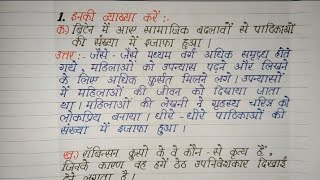 1. इनकी व्याख्या करें :-
क) ब्रिटेन में आए सामाजिक बदलावों से पाठिकाओं
की संख्या में इजाफा हुआ।
उत्तर:- जैसे - जैसे मध्यम वर्ग अधिक समृद्ध होते
गये, महिलाओं को उपन्यास पढ़ने और लिखने
के लिए अधिक फुर्सत मिलने लगे। उपन्यासों
में महिलाओं की जीवन को दिखाया जाता
था। महिलाओं की लेखनी ने गृहस्थ चरित्र को
लोकप्रिय बनाया। धीरे - धीरे पाठिकाओं की
संख्या में इजाफा हुआ।
ख) रॉबिन्सन क्रूसो के वे कौन - से कृत्य हैं,
जिनके कारण वह हमें ठेठ उपनिवेशकार दिखाई
देने लगता है।